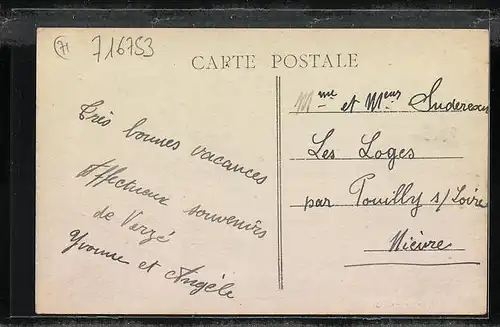 71
716753
CARTE POSTALE
Très bonnes vacances
Affectueux souvenirs
de Verzé
Yvonne et Angèle
Mme et Meur Sudereau
Les Loges
par Pouilly s/Loire
Nièvre